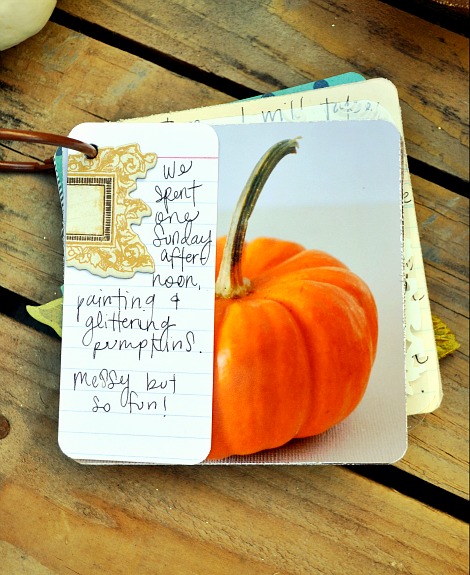 I will take
We
spent
one
Sunday
after
noon,
painting &
glittering
pumpkins.
messy but
so fun!